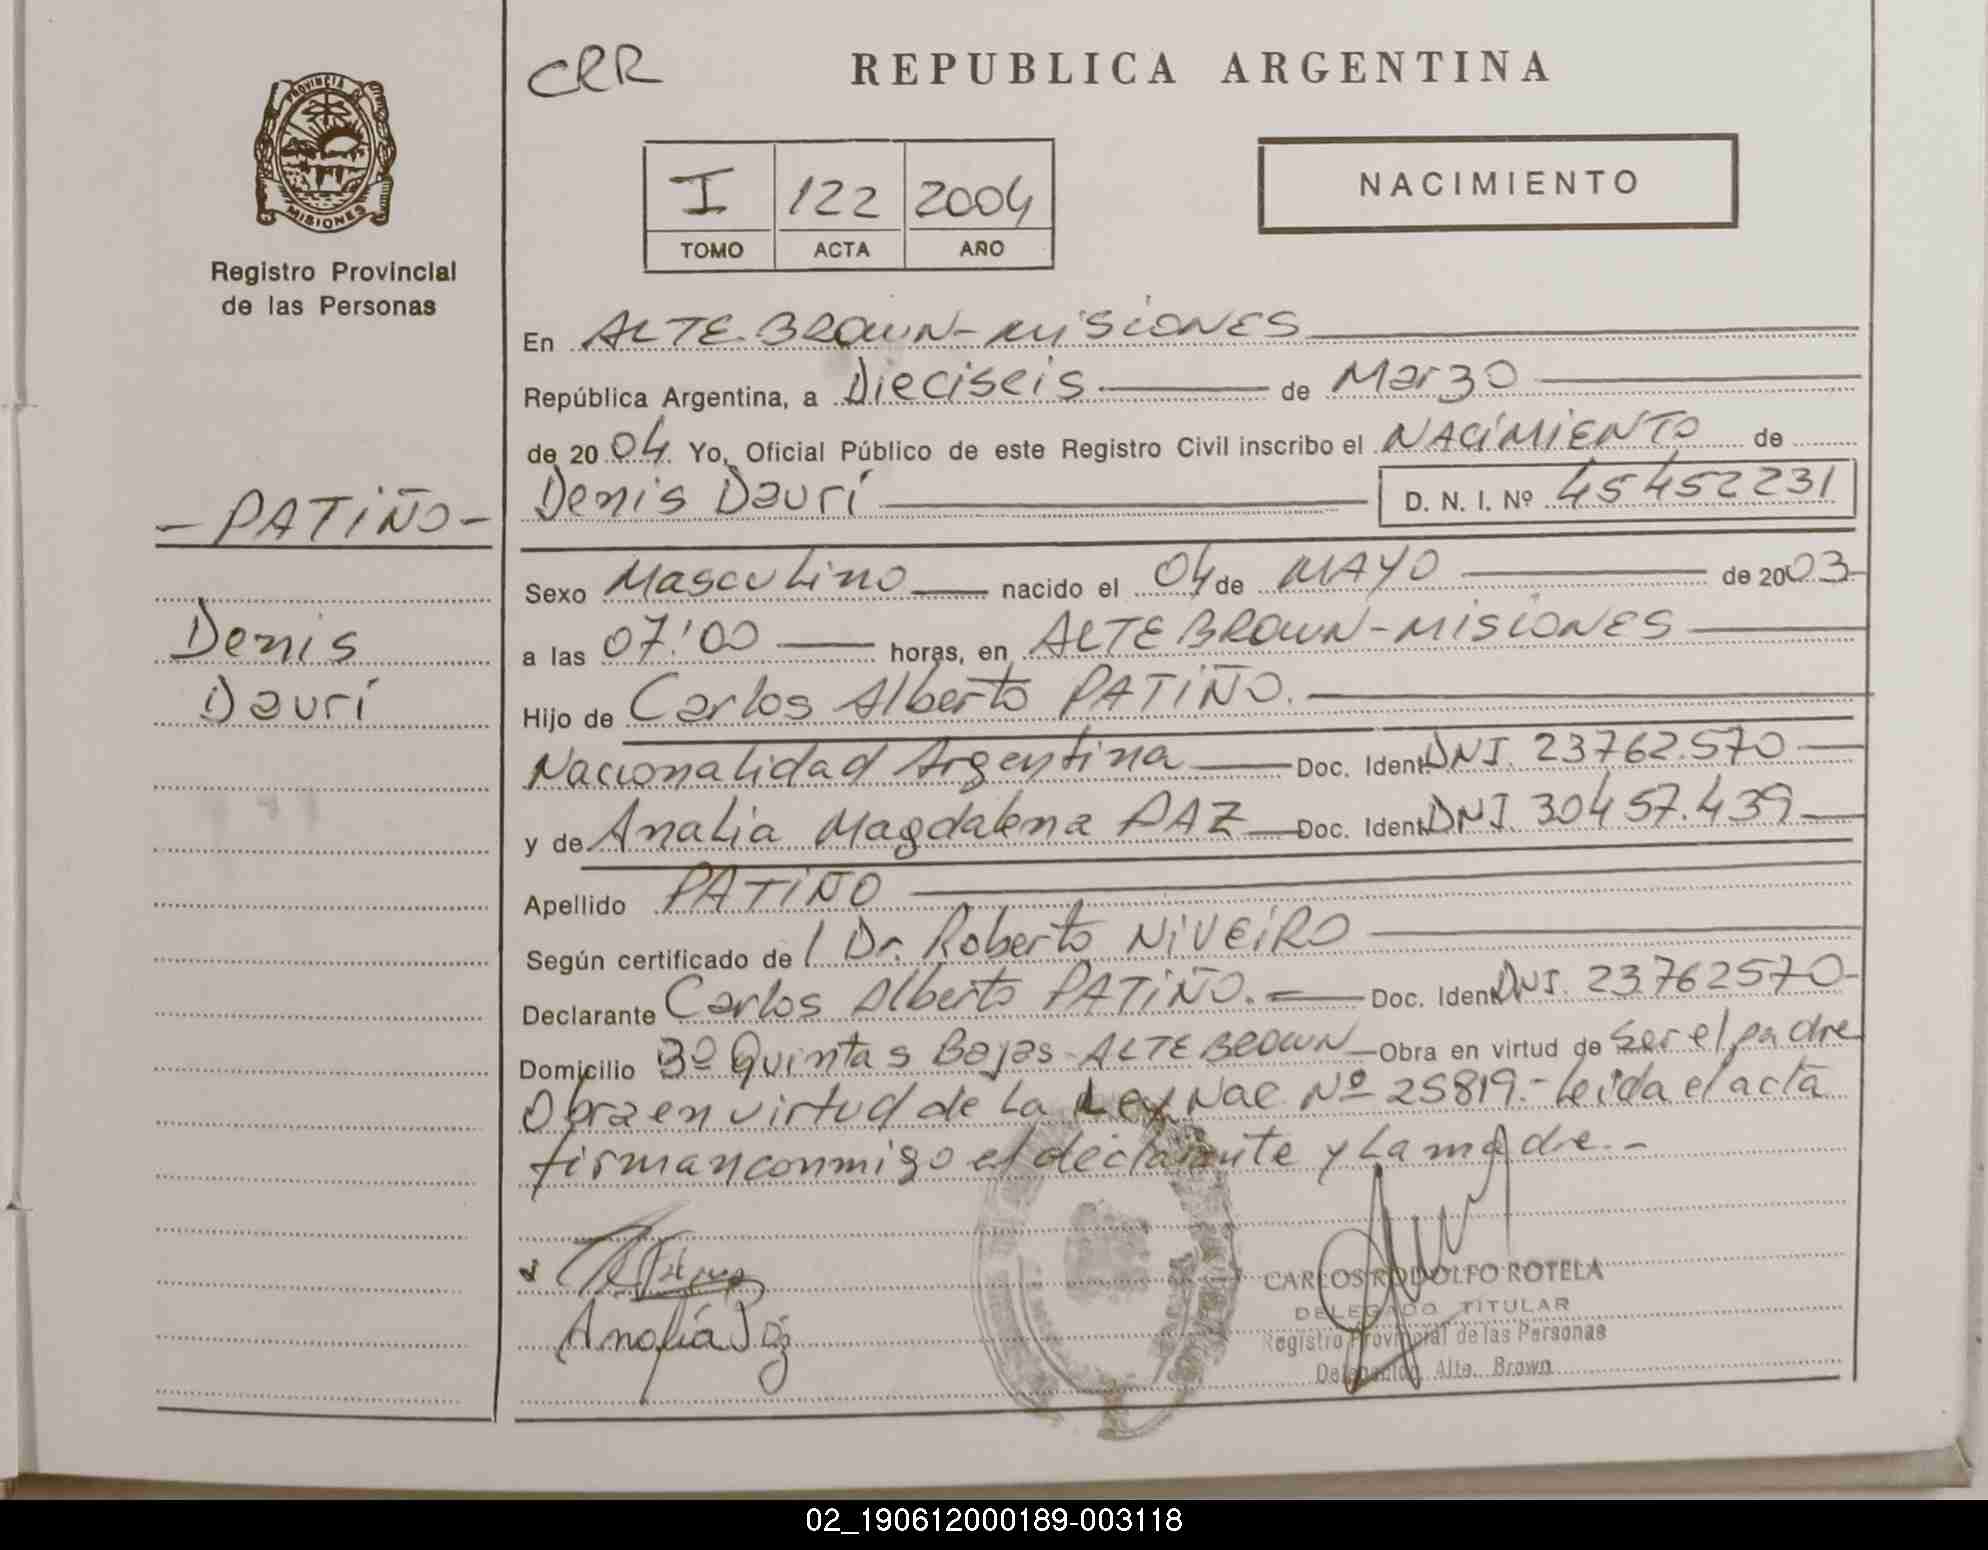 CRR
REPUBLICA ARGENTINA
PROVINCIA DE
MISIONES
Registro Provincial
de las Personas
I 122 2004
TOMO ACTA AÑO
NACIMIENTO
En ALTE. BROWN - MISIONES
República Argentina, a Dieciseis de Marzo
de 2004. Yo, Oficial Público de este Registro Civil inscribo el NACIMIENTO de
Denis Daurí D. N. I. Nº 45452231
- PATIÑO -
Denis
Daurí
Sexo Masculino nacido el 04 de MAYO de 2003-
a las 07:00 horas, en ALTE BROWN - MISIONES
Hijo de Carlos Alberto PATIÑO.
Nacionalidad Argentina Doc. Ident. DNI. 23762.570
y de Analia Magdalena PAZ Doc. Ident. DNI. 30457.439
Apellido PATIÑO
Según certificado de / Dr. Roberto NIVEIRO
Declarante Carlos Alberto PATIÑO. Doc. Ident. DNI. 23762570-
Domicilio 3º Quintas Bajas - ALTE BROWN Obra en virtud de Ser el padre
Obra en virtud de La Ley Nac Nº 25819.- Leida el acta
firman conmigo el declarante y La madre.-
Analía Paz
CARLOS RODOLFO ROTELA
DELEGADO TITULAR
Registro Provincial de las Personas
Delegación Alte. Brown
02_190612000189-003118